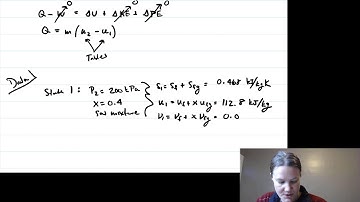 Q - W⁰ = ΔU + ΔKE⁰ + ΔPE⁰
Q = m(u₂ - u₁)
Tables
Data
State 1: P₂ = 200 kPa
x = 0.4
Sat mixture
s₁ = sf + sfg = 0.468 kJ/kgK
u₁ = uf + x ufg = 112.8 kJ/kg
v₁ = vf + x vfg = 0.0